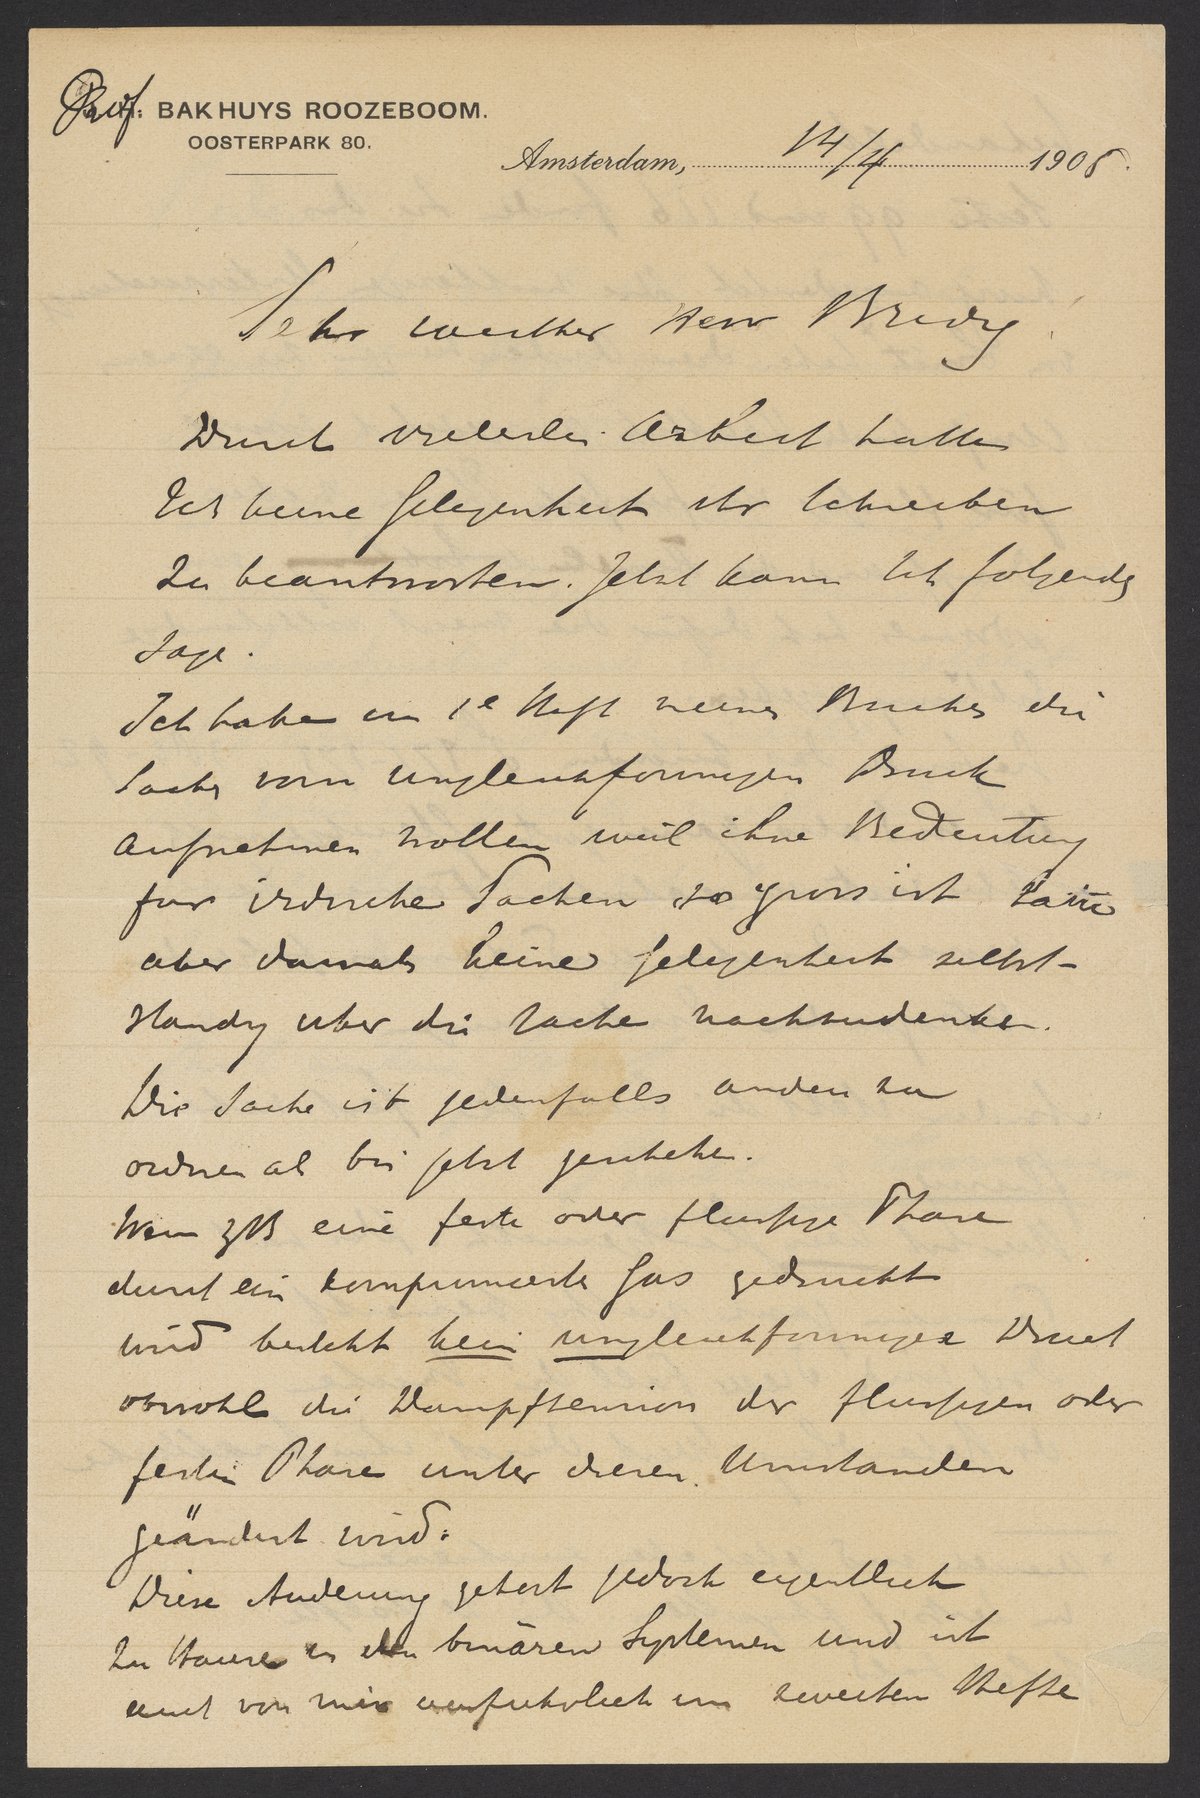 Prof. BAKHUYS ROOZEBOOM.
OOSTERPARK 80.
Amsterdam, 14/4 1906.
Sehr werther Herr Bredig!
Durch vielerlei Arbeit hatte
Ich keine Gelegenheit ihr Schreiben
zu beantworten. Jetzt kann Ich folgendes
sage.
Ich habe im 1e Heft meines Buches die
Sache vom ungleichformigen Druck
aufnehmen wollen weil ihre Bedeutung
fur irdische Sachen so gross ist hatte
aber damals keine Gelegenheit selbst-
standig uber die Sache nachzudenken.
Die Sache ist jedenfalls anders zu
ordnen als bis jetzt geschehen.
Wenn zB eine feste oder flussige Phase
durch ein komprimierte Gas gedruckt
wird besteht kein ungleichformiger Druck
obwohl die Dampftension der flussigen oder
festen Phase unter diesen Umstanden
geändert wird.
Diese Anderung gehort jedoch eigentlich
zu Hause in den binären Systemen und ist
auch von mir ausfuhrlich im zweiten Hefte